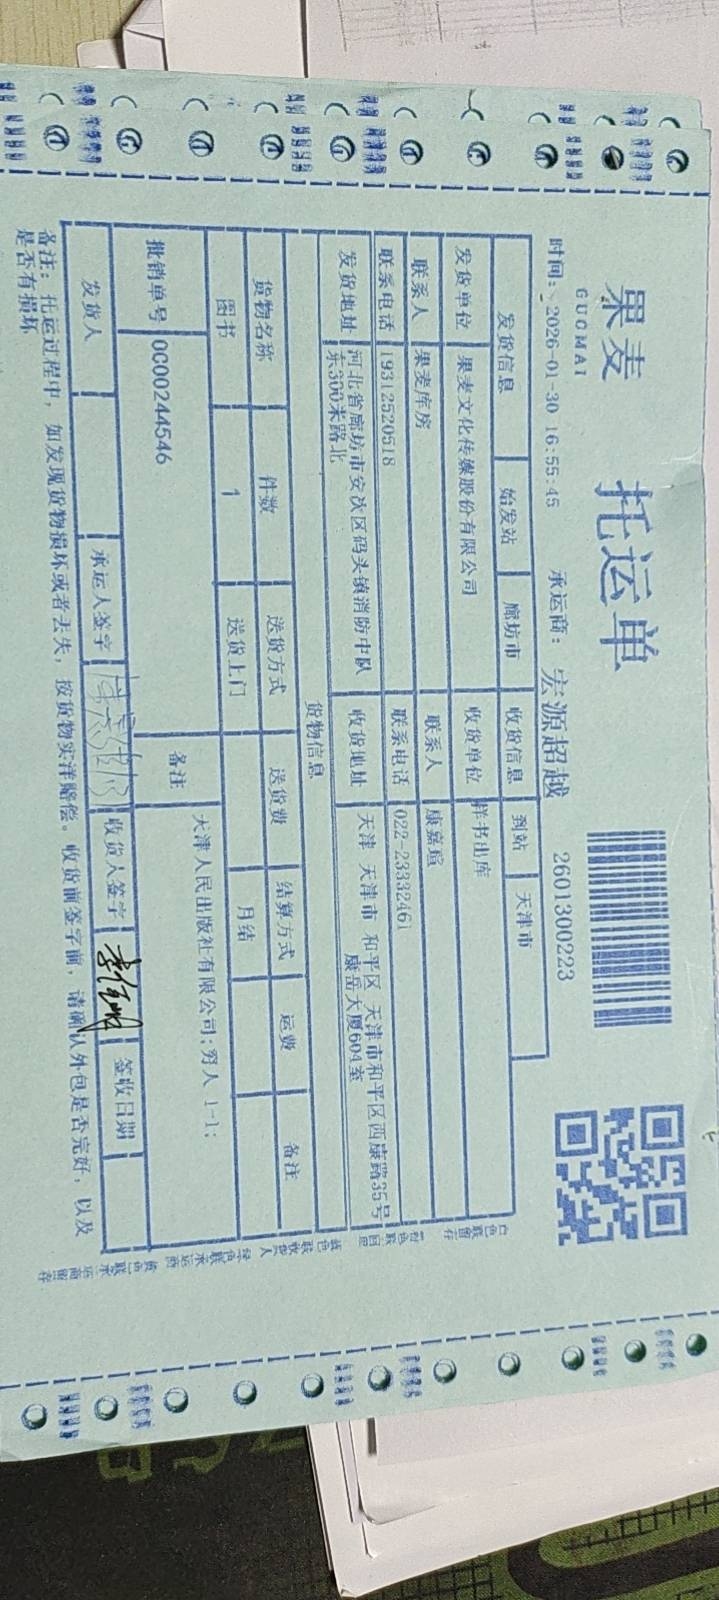 果麦 托运单
GUOMAI
时间： 2026-01-30 16:55:45 承运商： 宏源超越 2601300223
发货信息 始发站 廊坊市 收货信息 到站 天津市
发货单位 果麦文化传媒股份有限公司 收货单位 样书出库
联系人 果麦库房 联系人 康嘉瑄
联系电话 19312520518 联系电话 022-23332461
发货地址 河北省廊坊市安次区码头镇消防中队 收货地址 天津 天津市 和平区 天津市和平区西康路35号
东300米路北 康岳大厦604室
货物信息
货物名称 件数 送货方式 送货费 结算方式 运费 备注
图书 1 送货上门 月结
批销单号 0000244546 备注 天津人民出版社有限公司;穷人 1-1;
发货人 承运人签字 收货人签字 签收日期
备注：托运过程中，如发现货物损坏或者丢失，按货物实洋赔偿。收货前签字前，请确认外包是否完好，以及
是否有损坏